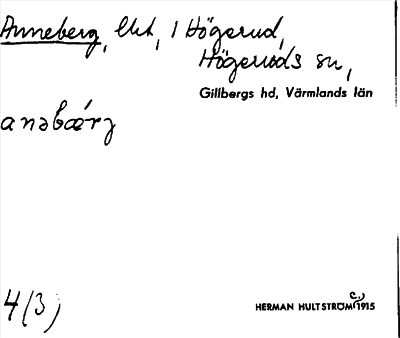 Anneberg, lht, 1 Högerud,
Högeruds sn,
Gillbergs hd, Värmlands län
anəbær̥ʒ
4 (3)
HERMAN HULTSTRÖM c. 1915